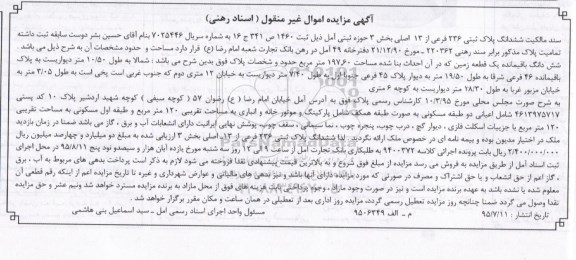 آگهی مزایده اموال غیر منقول ( اسناد رهنی )
سند مالکیت ششدانگ پلاک ثبتی ۲۳۶ فرعی از ۱۳ اصلی بخش ۳ حوزه ثبتی آمل ذیل ثبت ۱۴۶۰ ص ۳۴۱ ج ۱۶ به شماره سریال ۷۰۲۵۴۴۶ بنام آقای حسین بشر دوست سابقه ثبت داشته
تمامیت پلاک مذکور برابر سند رهنی ۲۲۰۳۶۲ مورخ ۲۱/۱۲/۹۰ دفترخانه ۴۹ آمل در رهن بانک تجارت شعبه امام رضا (ع) قرار دارد مساحت و حدود مشخصات آن به شرح ذیل می باشد .
شش دانگ باقیمانده یک قطعه زمین که در آن احداث بنا شده مساحت ۱۹۷,۶۰ متر مربع حدود و مشخصات پلاک فوق بدین شرح می باشد : شمالا به طول ۱۰/۵۰ متر دیواریست به پلاک
باقیمانده ۴۶ فرعی شرقا به طول ۱۹/۵۰ متر به دیوار پلاک ۴۵ فرعی جنوبا اول به طول ۷/۴۰ متر دیواریست به خیابان ۱۲ متری دوم که جنوب غربی است پخی است به طول ۳/۰۵ متر به
خیابان مزبور غربا به طول ۱۸/۳۰ متر دیواریست به کوچه ۶ متری
به شرح صورت مجلس محلی مورخ ۱۰/۳/۹۵ کارشناس رسمی پلاک فوق به آدرس آمل خیابان امام رضا ( ع ) رضوان ۵۷ ( کوچه سیفی ) کوچه شهید اردشیر پلاک ۱۰ کد پستی
۴۶۱۳۹۷۵۷۱۷ شامل اعیانی دو طبقه مسکونی به صورت طبقه همکف شامل پارکینگ و موتور خانه و انباری به مساحت تقریبی ۱۲۰ متر مربع و طبقه اول مسکونی به مساحت تقریبی
۱۲۰ متر مربع با جزییات اسکلت فلزی ، دیوار گچ ، درب چوب ، پنجره چوب ، نما سیمانی ، سقف چوب، پوشش نهایی ایرانیت دارای انشعابات آب و برق ، گاز می باشد ضمنا در زمان بازدید
ملک در اختیار مدیون بوده و بیمه نامه ای در خصوص ملک ارائه نگردید . لذا ششدانگ پلاک ثبتی ۲۳۶ فرعی از ۱۳ اصلی بخش ۳ ارزیابی شده به مبلغ دو میلیارد و چهارصد میلیون ریال
۲/۴۰۰/۰۰۰/۰۰۰ ریال بابت پرونده اجرائی کلاسه ۹۴۰۰۲۷۲ به طلبکاری بانک تجارت آمل از ساعت ۹ الی ۱۲ روز سه شنبه مورخ یازده آبان هزار و سیصدو نود پنج ۹۵/۸/۱۱ در محل اجرای
ثبت اسناد آمل از طریق مزایده به فروش می رسد مزایده از مبلغ فوق شروع و به بالاترین قیمت پیشنهادی نقدا فروخته می شود لازم به ذکر است پرداخت بدهی های مربوطه به آب ، برق
، گاز اعم از حق انشعاب و یا حق اشتراک و مصرف در صورتی که مورد مزایده دارای آنها باشد و نیز بدهی های مالیاتی و عوارض شهرداری و غیره تا تاریخ مزایده اعم از اینکه رقم قطعی آن
معلوم شده یا نشده باشد به عهده برنده مزایده است و نیز در صورت وجود مازاد ، وجوه پرداختی بابت هزینه های فوق از محل مازاد به برنده مزایده مسترد خواهد شد ونیم عشر و حق مزایده
نقدا وصول می گردد ضمنا چنانچه روز مزایده تعطیل رسمی گردد، مزایده روز اداری بعد از تعطیلی در همان ساعت و مکان مقرر برگزار خواهد شد .
تاریخ انتشار : ۹۵/۷/۱۱ م - الف ۹۵۰۶۳۴۹ مسئول واحد اجرای اسناد رسمی آمل - سید اسماعیل بنی هاشمی